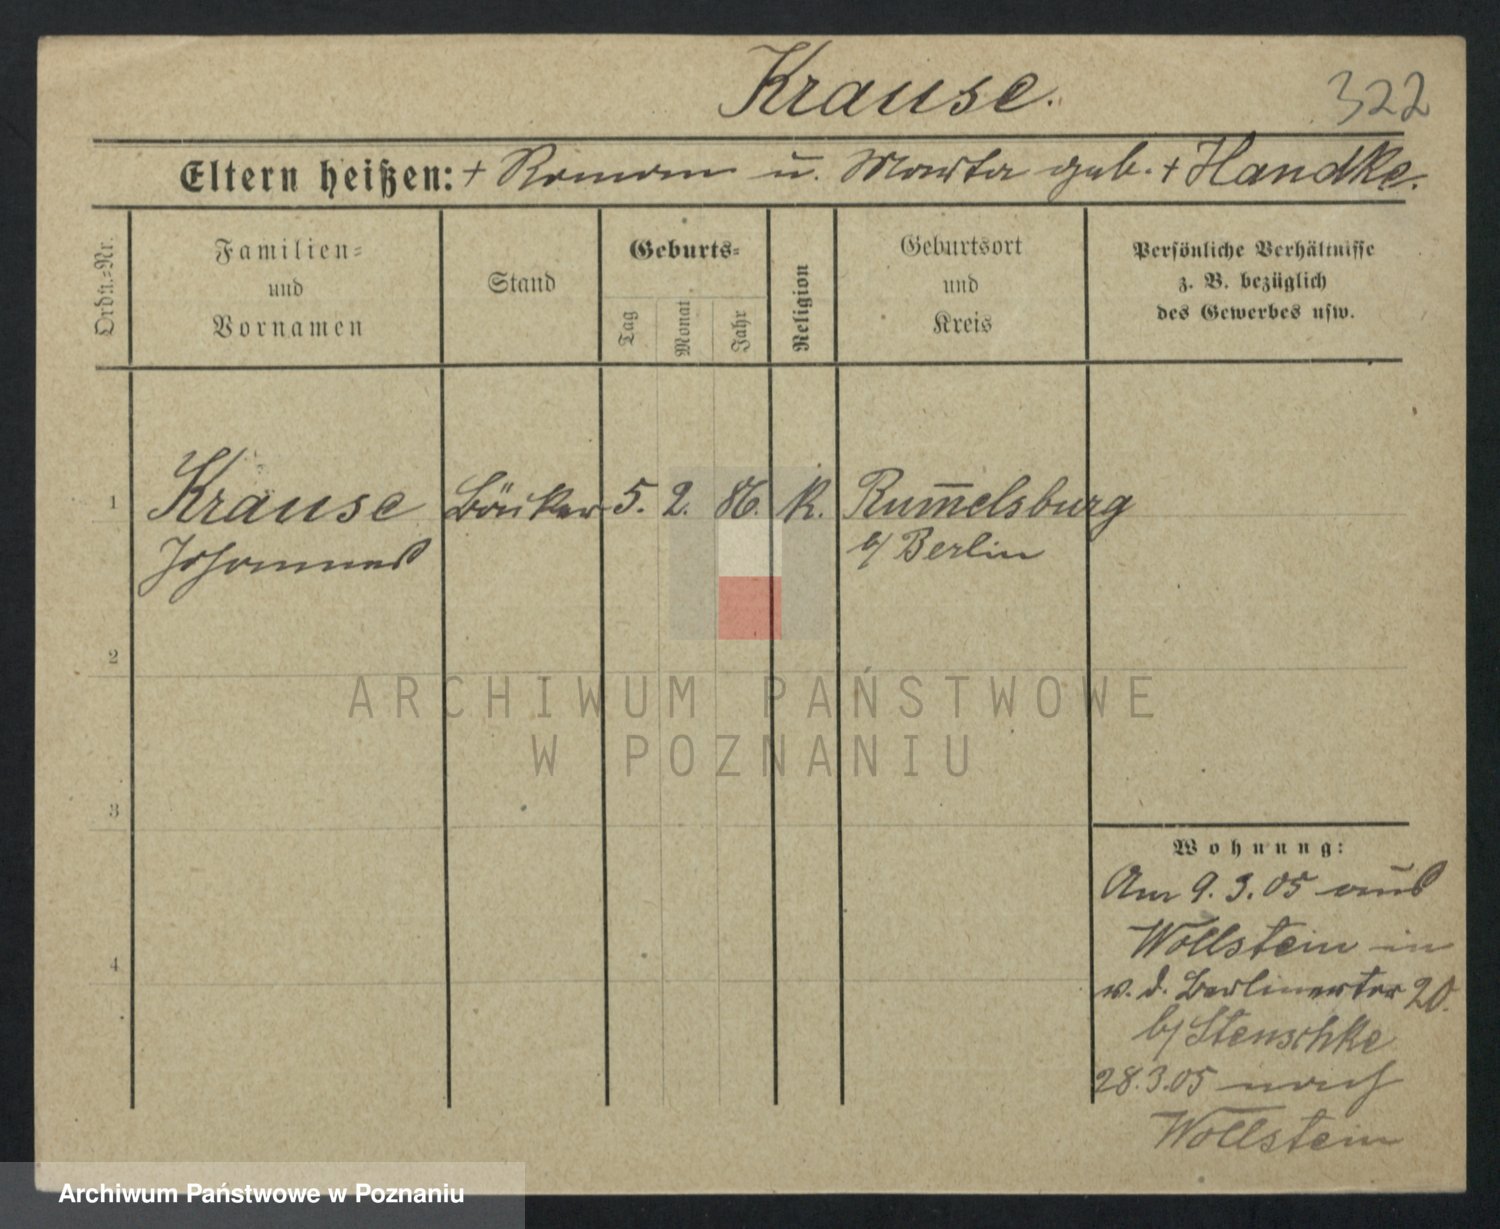 Krause.
322
Eltern heißen: + Roman u. Marta geb. + Handke.
Ordn.-Nr.
Familien-
und
Vornamen
Stand
Geburts-
Tag
Monat
Jahr
Religion
Geburtsort
und
Kreis
Persönliche Verhältnisse
z. B. bezüglich
des Gewerbes usw.
1 Krause Bäcker 5. 2. 86. K. Rum̅elsburg
Johannes b/ Berlin
2
3
4
Wohnung:
Am 9.3.05 aus
Wollstein in
v. d. Berlinertor 20.
b/ Stenschke
28.3.05 nach
Wollstein
ARCHIWUM PAŃSTWOWE
W POZNANIU
Archiwum Państwowe w Poznaniu